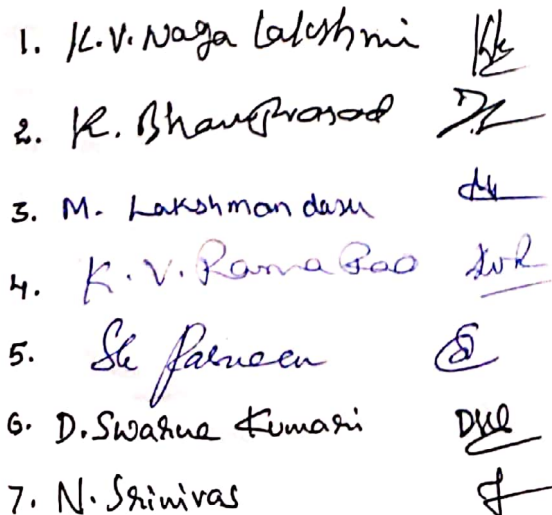 1. K.V. Naga Lakshmi
2. K. Bhanu Prasad
3. M. Lakshman dasu
4. K.V. Rama Rao KVR
5. Sk Parveen
6. D. Swarna Kumari
7. N. Srinivas